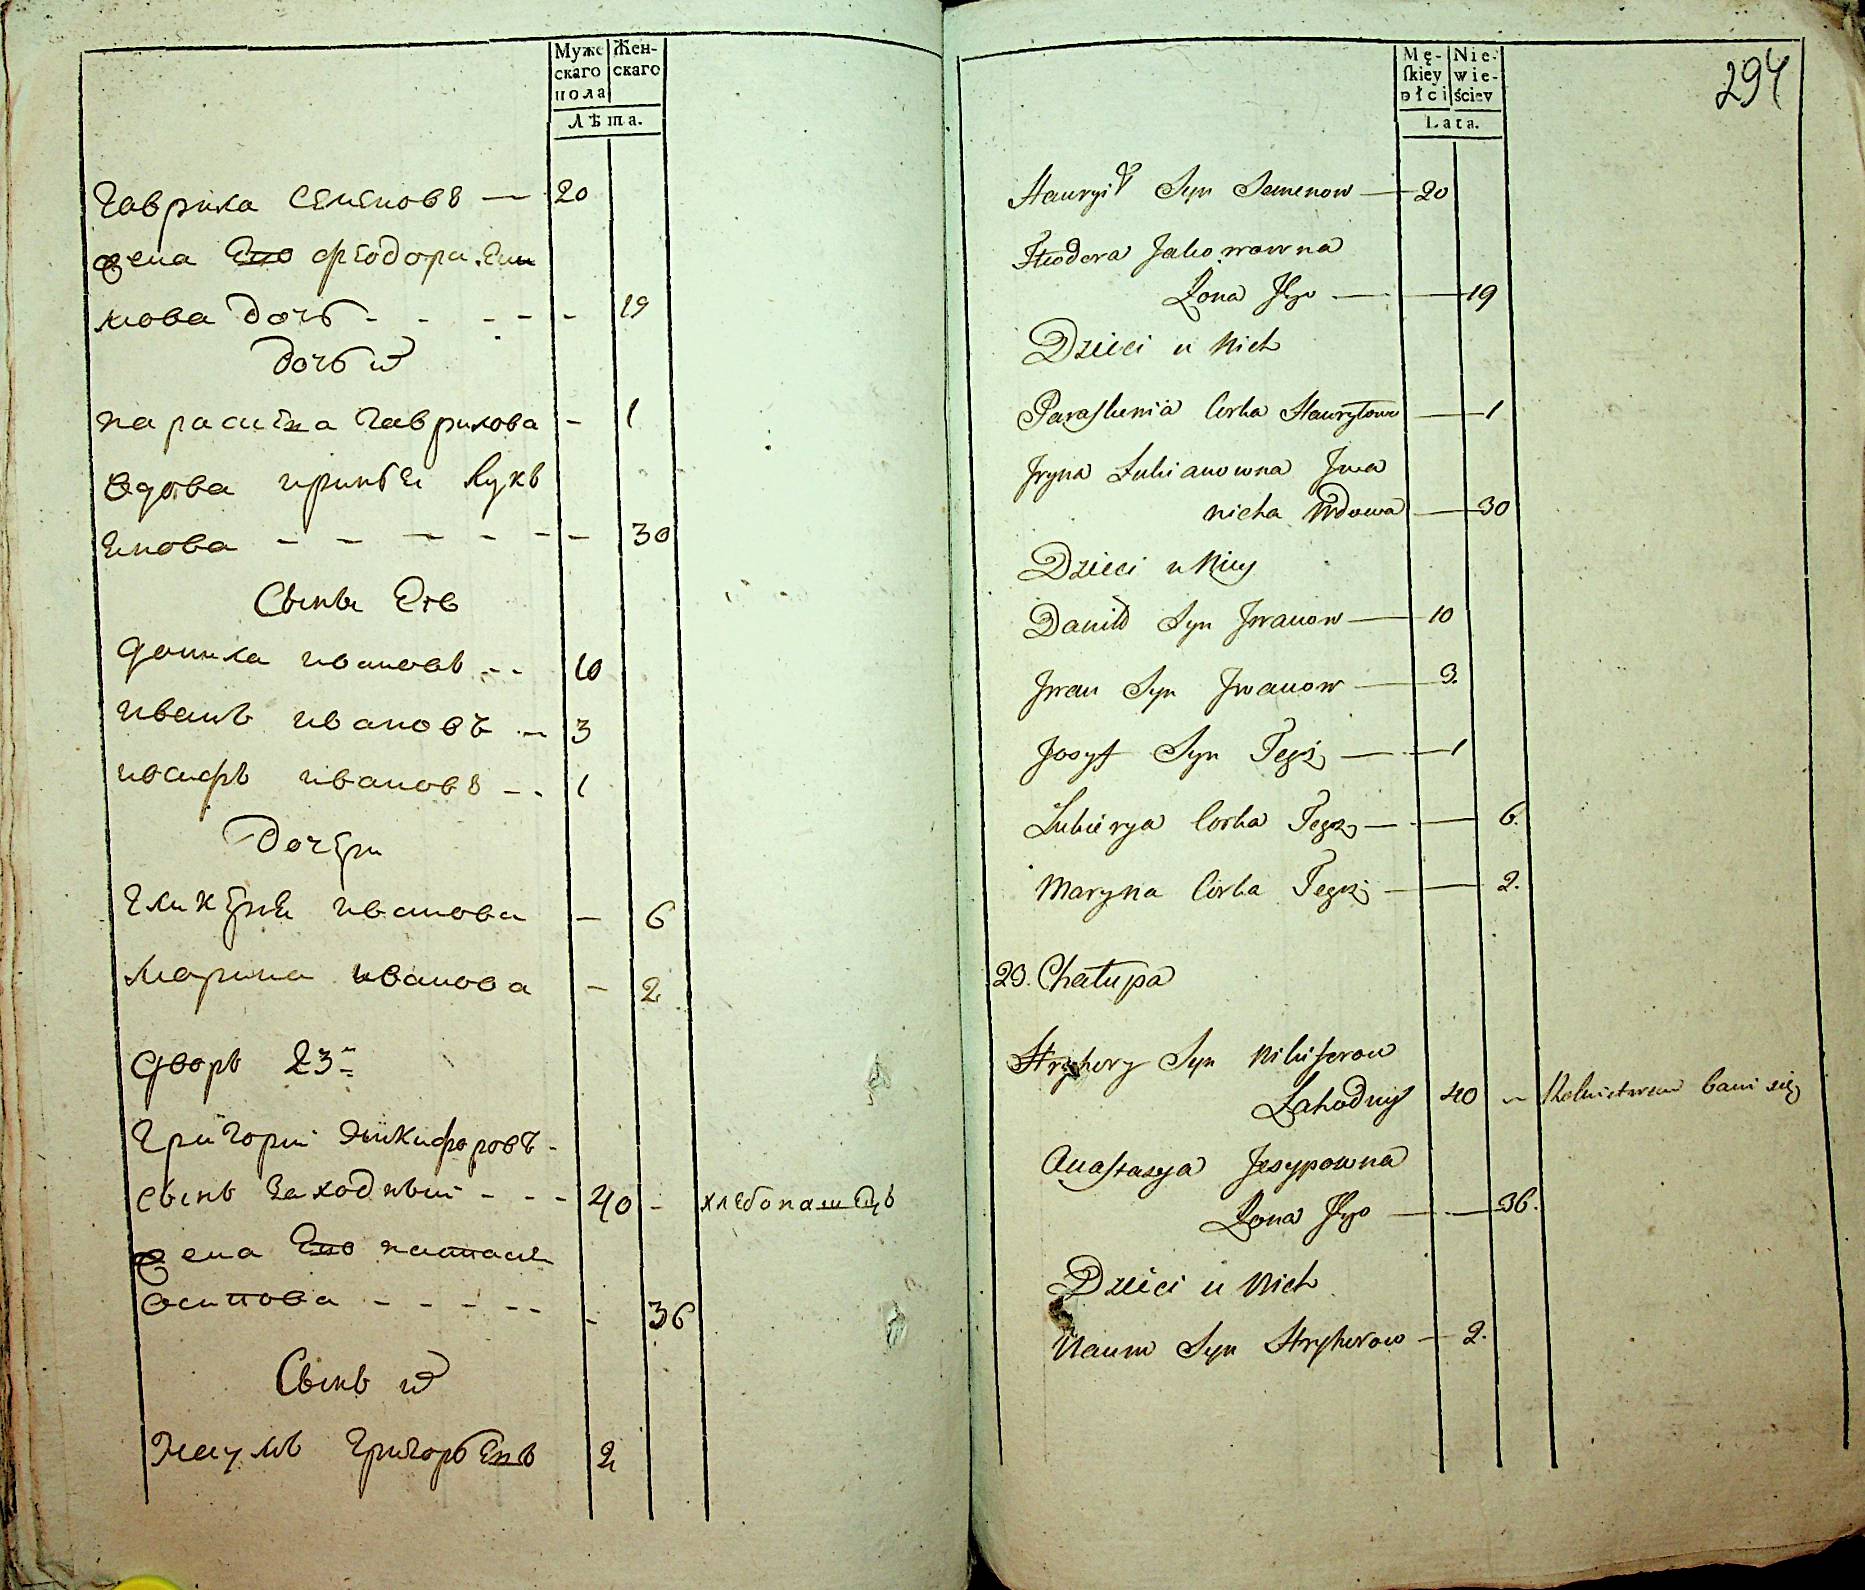 Муже
скаго
пола
Жен-
скаго
Лѣта.
Гаврила Семеновъ — 20
жена Его феодора Ени
мова дочь - - - - - 19
дочь их
парасмена Гаврилова - 1
вдова ирины Лукь
янова - - - - - - 30
Сыны Ея
данила ивановъ - - 10
иванъ ивановъ - 3
иосифъ ивановъ - - 1
Дочери
гликерия иванова - 6
марина иванова - 2
дворъ 23й
Григорий Никифоровъ -
сынъ Заходный - - - 40 - хлебопашецъ
жена Его настася
осипова - - - - - - 36
Сынъ их
Наумъ григорьевъ 2
Mę-
skiey
płci
Nie-
wie-
ściey
Lata.
294
Hawryił Syn Semenow — 20
Theodora Jakowowna
Żona Jego — — 19
Dzieci u Nich
Paraskiewia Corka Hawryłowa — 1
Iryna Lukianowna Iwa
nicha Wdowa — 30
Dzieci u Niey
Daniło Syn Iwanow — 10
Iwan Syn Iwanow — 3.
Josyf Syn Tegoż — — 1
Lukierya Corka Tegoż — — 6.
Maryna Corka Tegoż — — 2.
23. Chałupa
Hryhory Syn Nikiforow
Zahodny 40 — Rolnictwem bawi się
Anastazya Jesypowna
Żona Jego — — 36.
Dzieci u Nich
Naum Syn Hryhorow — 2.